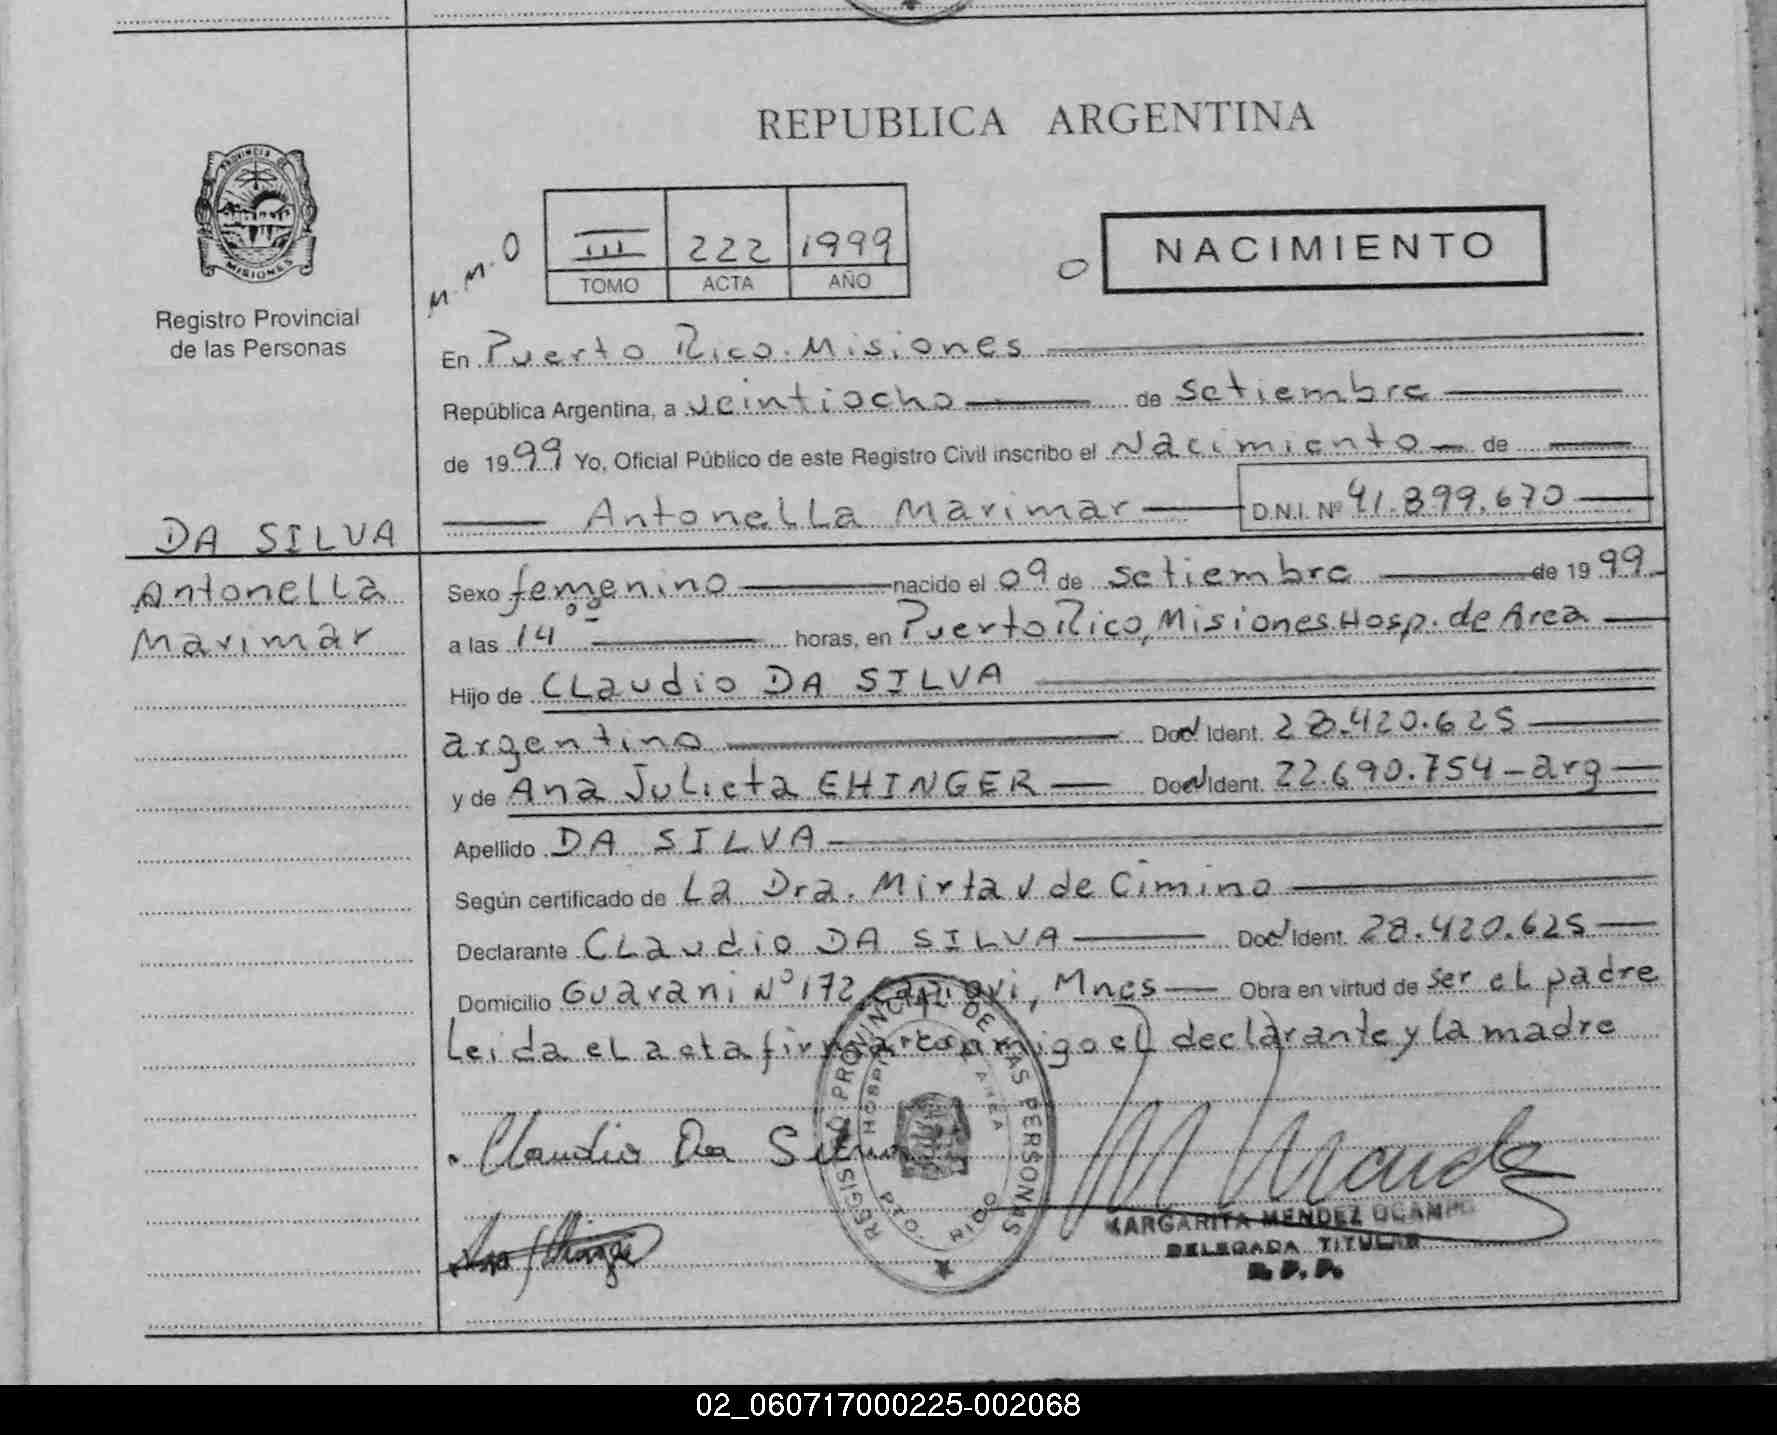 REPUBLICA ARGENTINA
PROVINCIA DE
MISIONES
Registro Provincial
de las Personas
M.M.O
III 222 1999
TOMO ACTA AÑO
NACIMIENTO
En Puerto Rico. Misiones
República Argentina, a veintiocho de setiembre
de 1999 Yo, Oficial Público de este Registro Civil inscribo el Nacimiento de
Antonella Marimar D.N.I. Nº 41.899.670
DA SILVA
Antonella
Marimar
Sexo femenino nacido el 09 de setiembre de 1999
a las 14 00 horas, en Puerto Rico, Misiones. Hosp. de Area
Hijo de Claudio DA SILVA
argentino Doc. Ident. 28.420.625
y de Ana Julieta EHINGER Doc. Ident. 22.690.754 - arg
Apellido DA SILVA
Según certificado de La Dra. Mirta V de Cimino
Declarante Claudio DA SILVA Doc. Ident. 28.420.625
Domicilio Guarani Nº 172 Capiovi, Mnes Obra en virtud de ser el padre
Leida el acta firman conmigo el declarante y la madre
REGISTRO PROVINCIAL DE LAS PERSONAS
HOSPITAL AREA
PTO. RICO
Claudio Da Silva
MARGARITA MENDEZ OCAMPO
DELEGADA TITULAR
R. P. P.
02_060717000225-002068